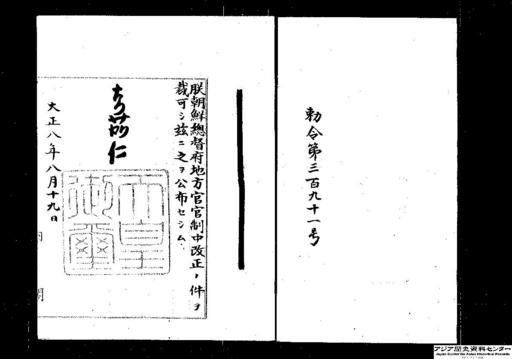 勅令第三百九十一号
朕朝鮮總督府地方官官制中改正ノ件ヲ
裁可シ茲ニ之ヲ公布セシム
嘉仁
天皇
御璽
大正八年八月十九日
内閣
アジア歴史資料センター
Japan Center for Asian Historical Records